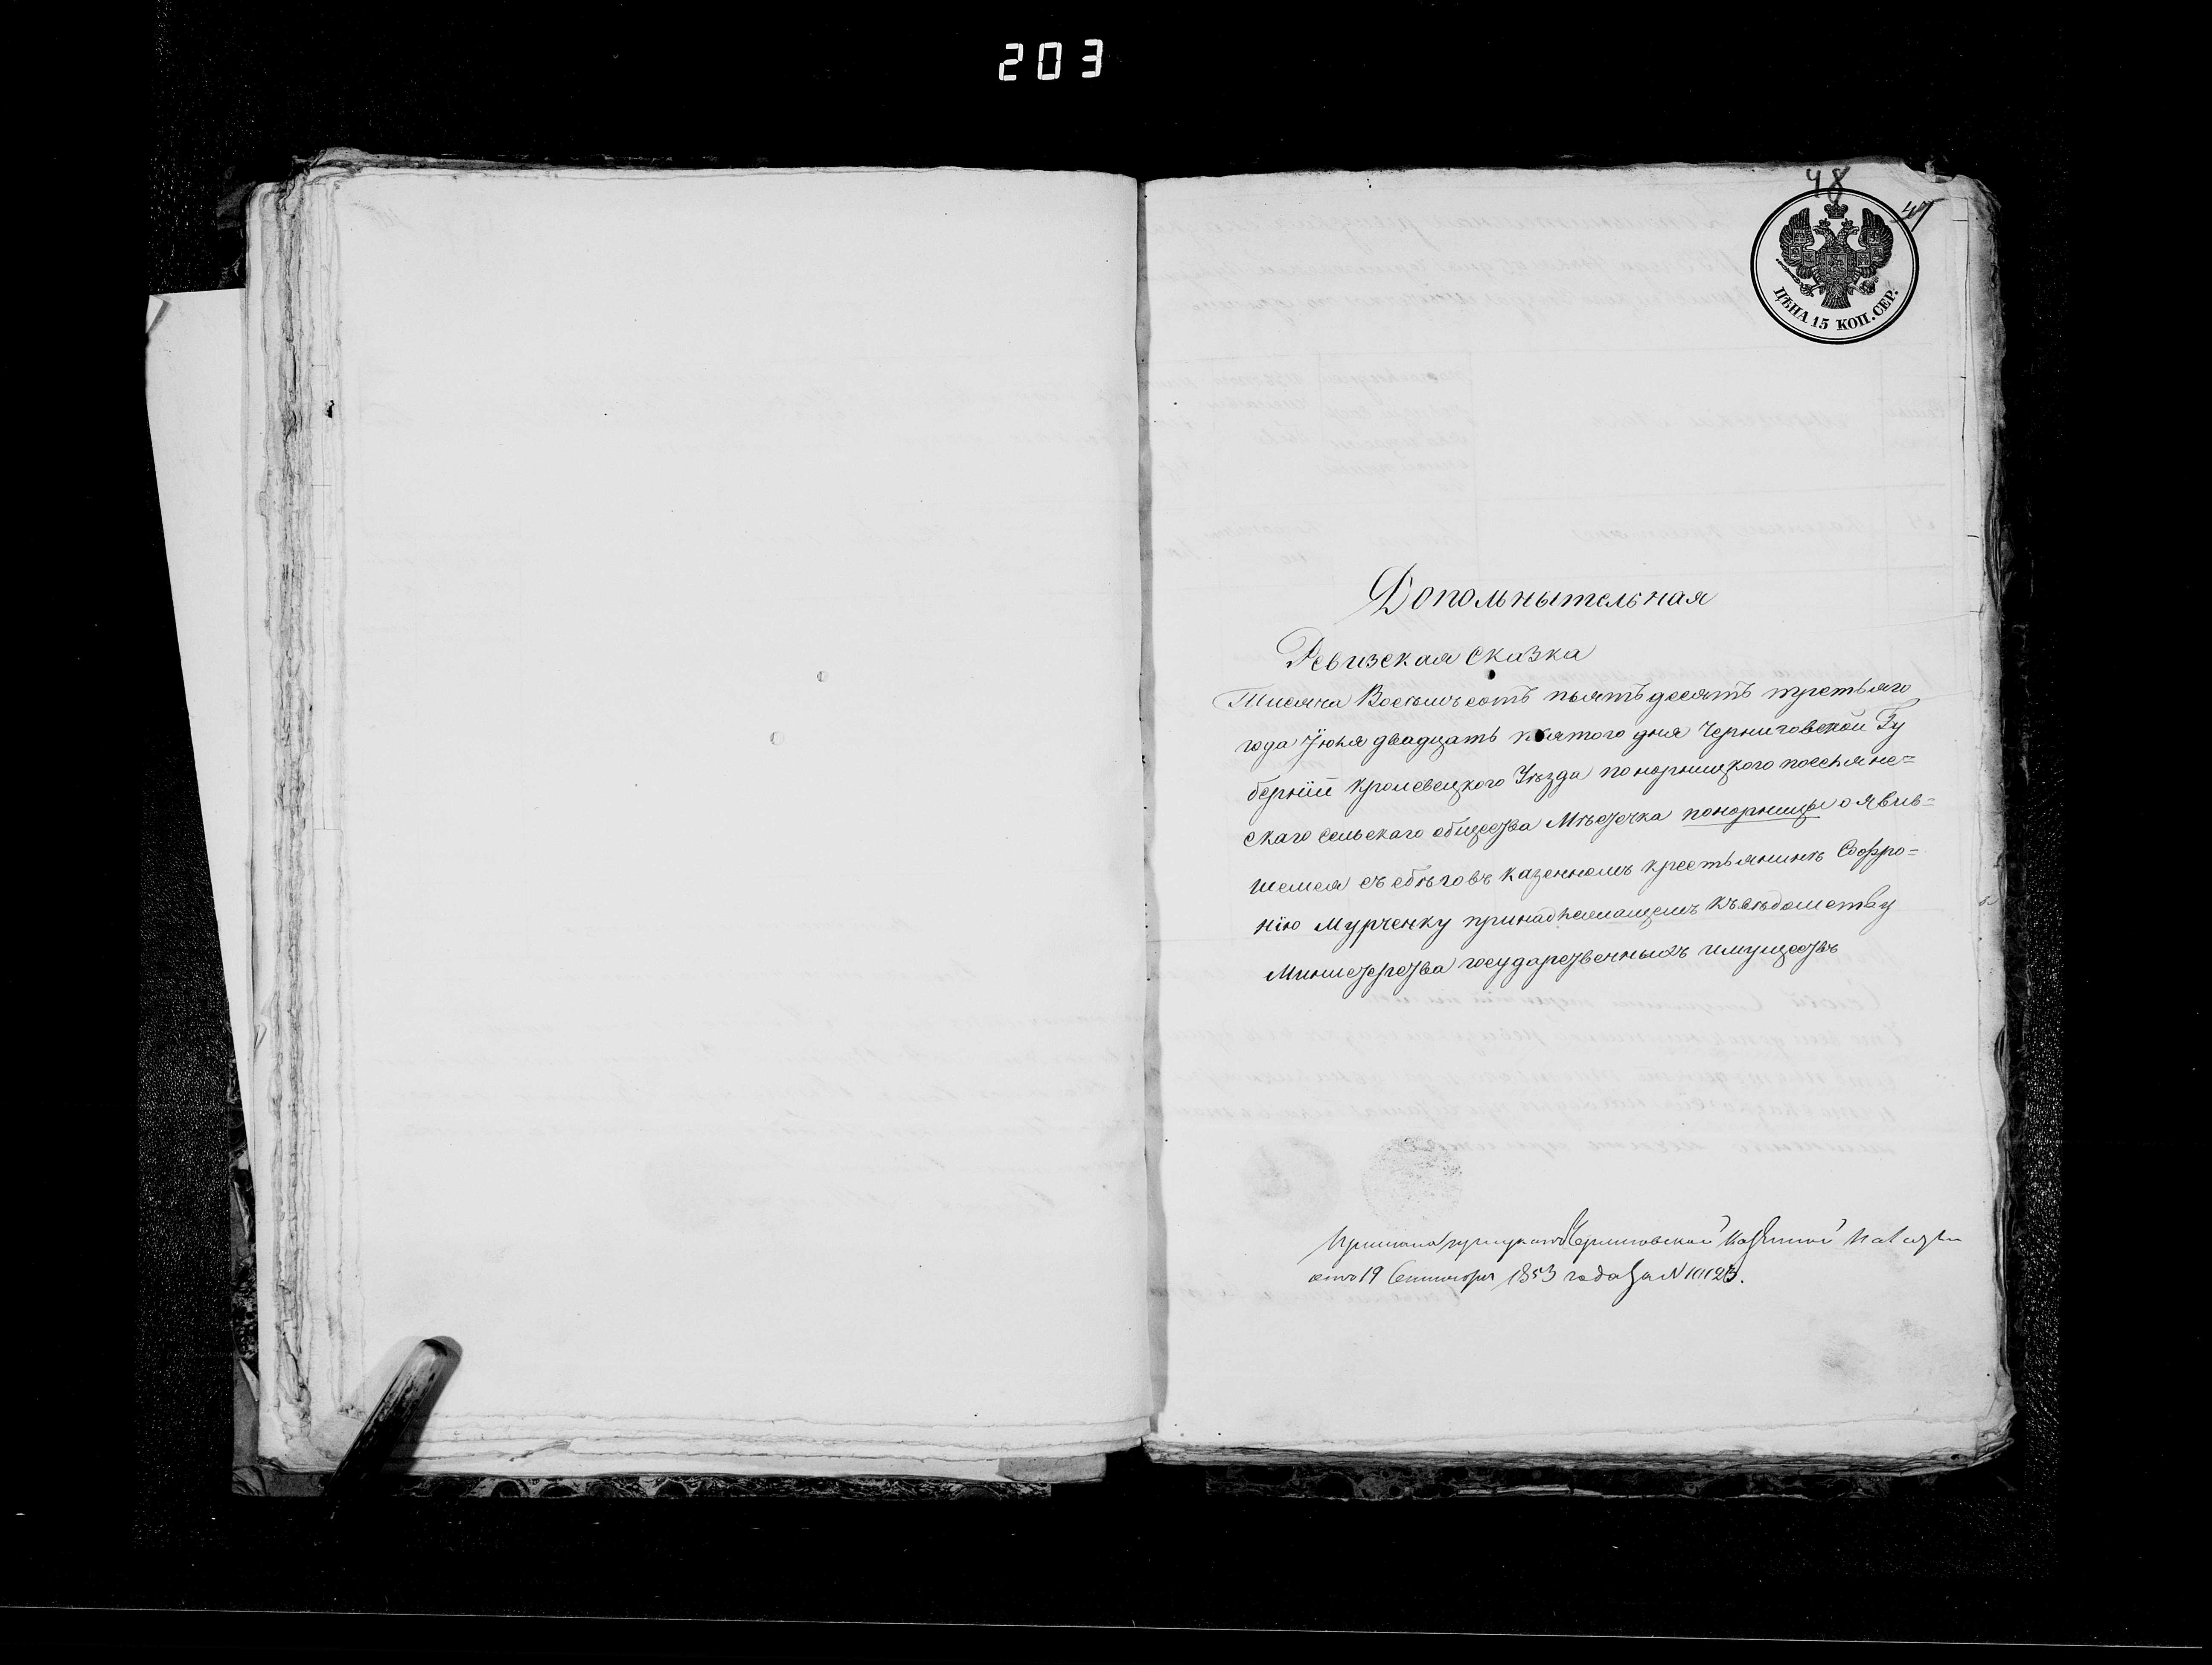 203
48
47
ЦѢНА 15 КОП. СЕР.
Допольнытельная
Ревизская Сказка
Тисяча Восѣмъ сотъ пьятъдесятъ третьяго
года Їюля двадцать пьятого дня Черниговской Гу
бернїи Кролевецкого Уѣзда понорницкого поселяне=
скаго сельскаго общества Мѣстечка понорницы о явив=
шемся съ ебѣговъ казенномъ крестьянинѣ Софро=
нїю Мурченку принадлежащемъ къ вѣдомству
Министерства государственныхъ имуществъ
Черниговской Казенной Палаты
отъ 19 Сентября 1853 года За N